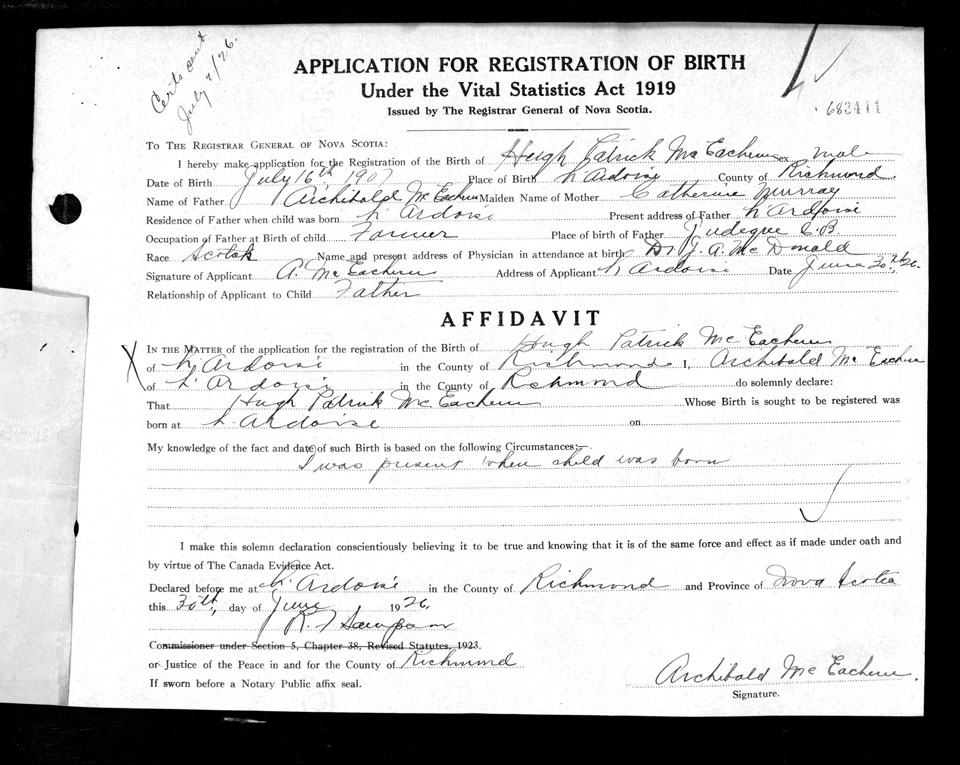 Certs sent
July 2/26.
APPLICATION FOR REGISTRATION OF BIRTH
Under the Vital Statistics Act 1919
Issued by The Registrar General of Nova Scotia.
682411
TO THE REGISTRAR GENERAL OF NOVA SCOTIA:
I hereby make application for the Registration of the Birth of Hugh Patrick McEachern Sex male
Date of Birth July 16th, 1907 Place of Birth L'Ardoise County of Richmond
Name of Father Archibald McEachern Maiden Name of Mother Catherine Murray
Residence of Father when child was born L'Ardoise Present address of Father L'Ardoise
Occupation of Father at Birth of child Farmer Place of birth of Father Judeque C.B.
Race Scotch Name and present address of Physician in attendance at birth Dr. J. A. McDonald
Signature of Applicant A. McEachern Address of Applicant L'Ardoise Date June 30th/26.
Relationship of Applicant to Child Father
AFFIDAVIT
IN THE MATTER of the application for the registration of the Birth of Hugh Patrick McEachern
of L'Ardoise in the County of Richmond I, Archibald McEachern
of L'Ardoise in the County of Richmond do solemnly declare:
That Hugh Patrick McEachern Whose Birth is sought to be registered was
born at L'Ardoise on
My knowledge of the fact and date of such Birth is based on the following Circumstances:—
I was present when child was born
I make this solemn declaration conscientiously believing it to be true and knowing that it is of the same force and effect as if made under oath and
by virtue of The Canada Evidence Act.
Declared before me at L'Ardoise in the County of Richmond and Province of Nova Scotia
this 30th, day of June 1926.
R. Sampson
Commissioner under Section 5, Chapter 38, Revised Statutes, 1923.
or Justice of the Peace in and for the County of Richmond
If sworn before a Notary Public affix seal.
Archibald McEachern.
Signature.